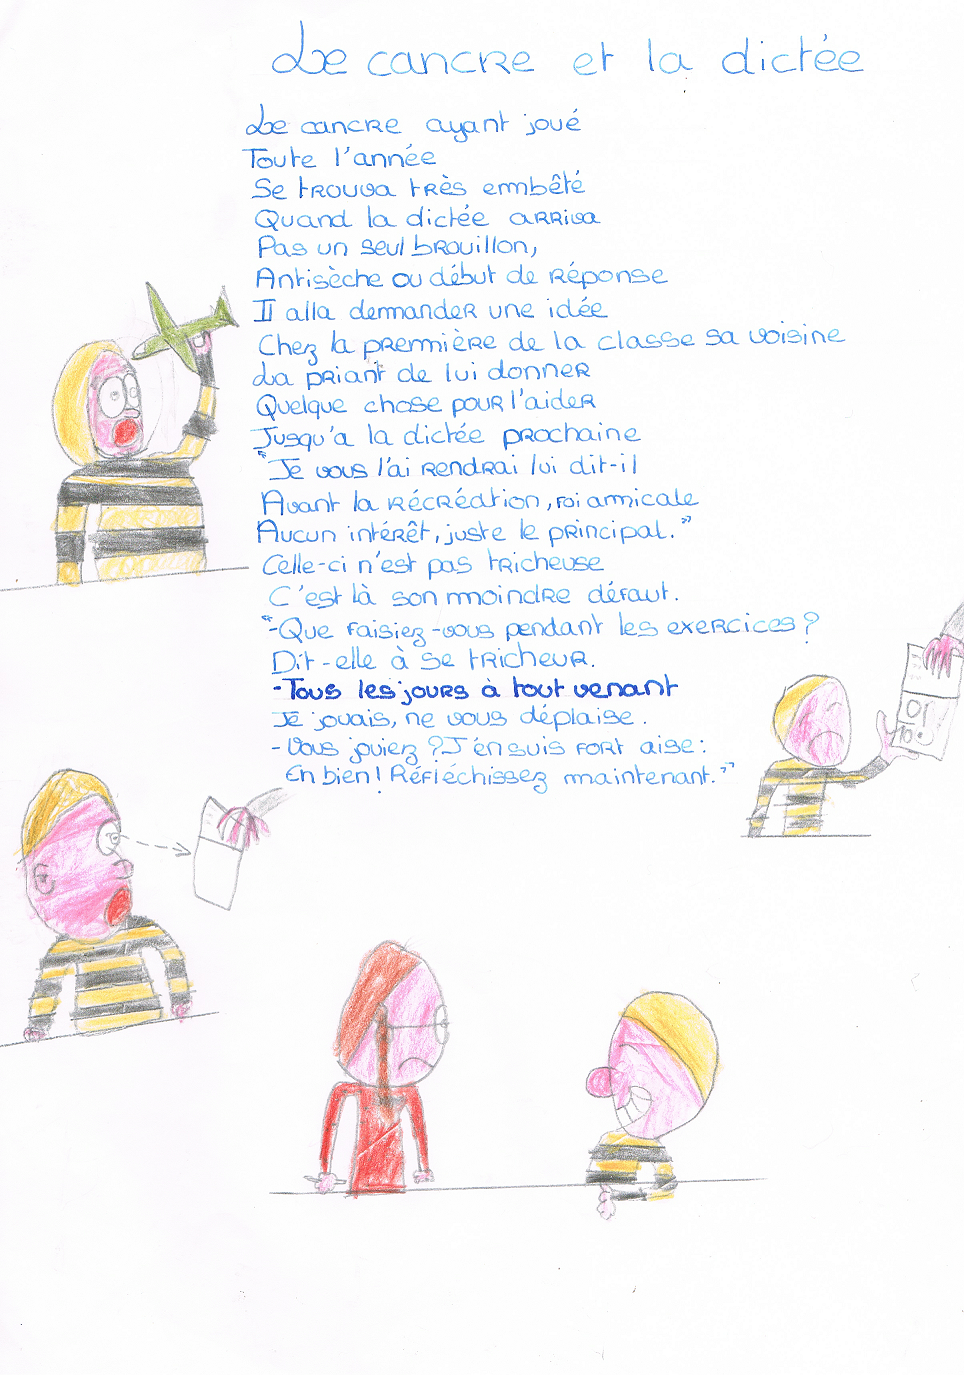 Le cancre et la dictée
Le cancre ayant joué
Toute l'année
Se trouva très embêté
Quand la dictée arriva
Pas un seul brouillon,
Antisèche ou début de réponse
Il alla demander une idée
Chez la première de la classe sa voisine
La priant de lui donner
Quelque chose pour l'aider
Jusqu'a la dictée prochaine
"Je vous l'ai rendrai lui dit-il
Avant la récréation, foi amicale
Aucun intérêt, juste le principal."
Celle-ci n'est pas tricheuse
C'est là son moindre défaut.
"-Que faisiez-vous pendant les exercices ?
Dit-elle à se tricheur.
-Tous les jours à tout venant
Je jouais, ne vous déplaise.
-Vous jouiez ? J'en suis fort aise :
Eh bien ! Réfléchissez maintenant."